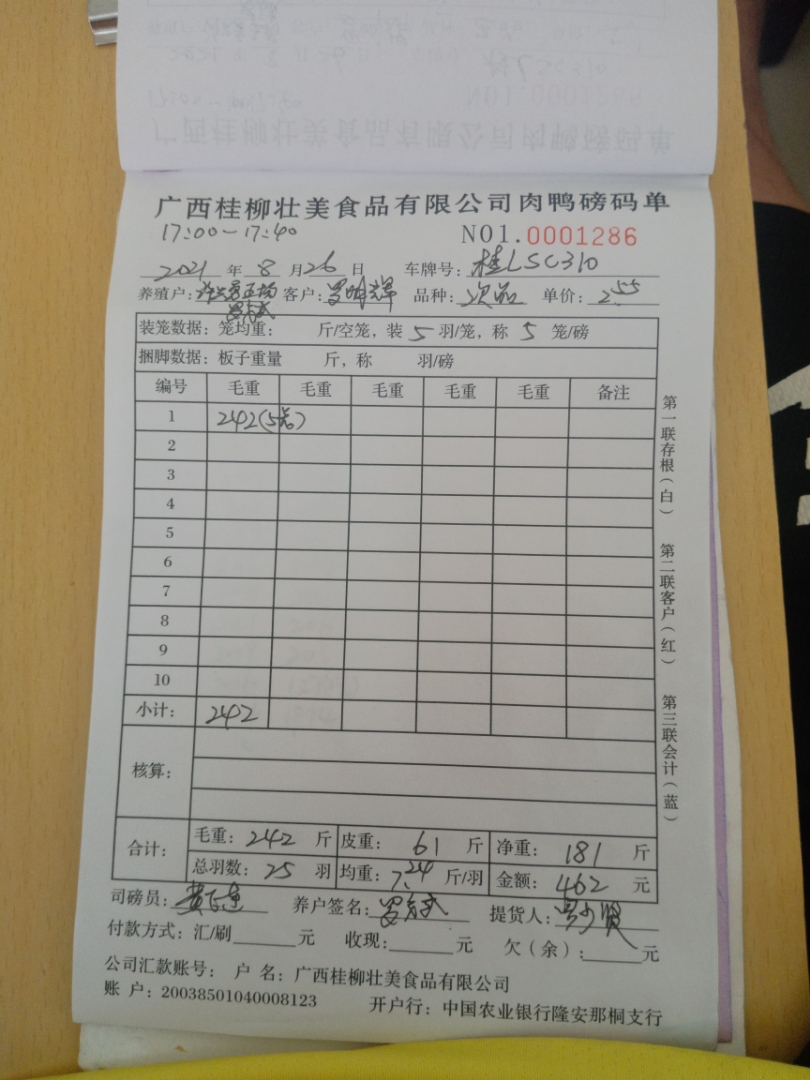 广西桂柳壮美食品有限公司肉鸭磅码单
17:00-17:40 NO1.0001286
2021 年 8 月 26 日 车牌号: 桂LSC310
养殖户: 客户: 罗明辉 品种: 次品 单价: 2.55
装笼数据: 笼均重: 斤/空笼, 装 5 羽/笼, 称 5 笼/磅
捆脚数据: 板子重量 斤, 称 羽/磅
编号 毛重 毛重 毛重 毛重 毛重 备注
1 242(5笼)
2
3
4
5
6
7
8
9
10
小计: 242
核算:
合计: 毛重: 242 斤 皮重: 61 斤 净重: 181 斤
总羽数: 25 羽 均重: 7.24 斤/羽 金额: 462 元
司磅员: 养户签名: 提货人:
付款方式: 汇/刷 元 收现: 元 欠(余): 元
公司汇款账号: 户 名: 广西桂柳壮美食品有限公司
账 户: 20038501040008123 开户行: 中国农业银行隆安那桐支行
第一联存根(白)
第二联客户(红)
第三联会计(蓝)